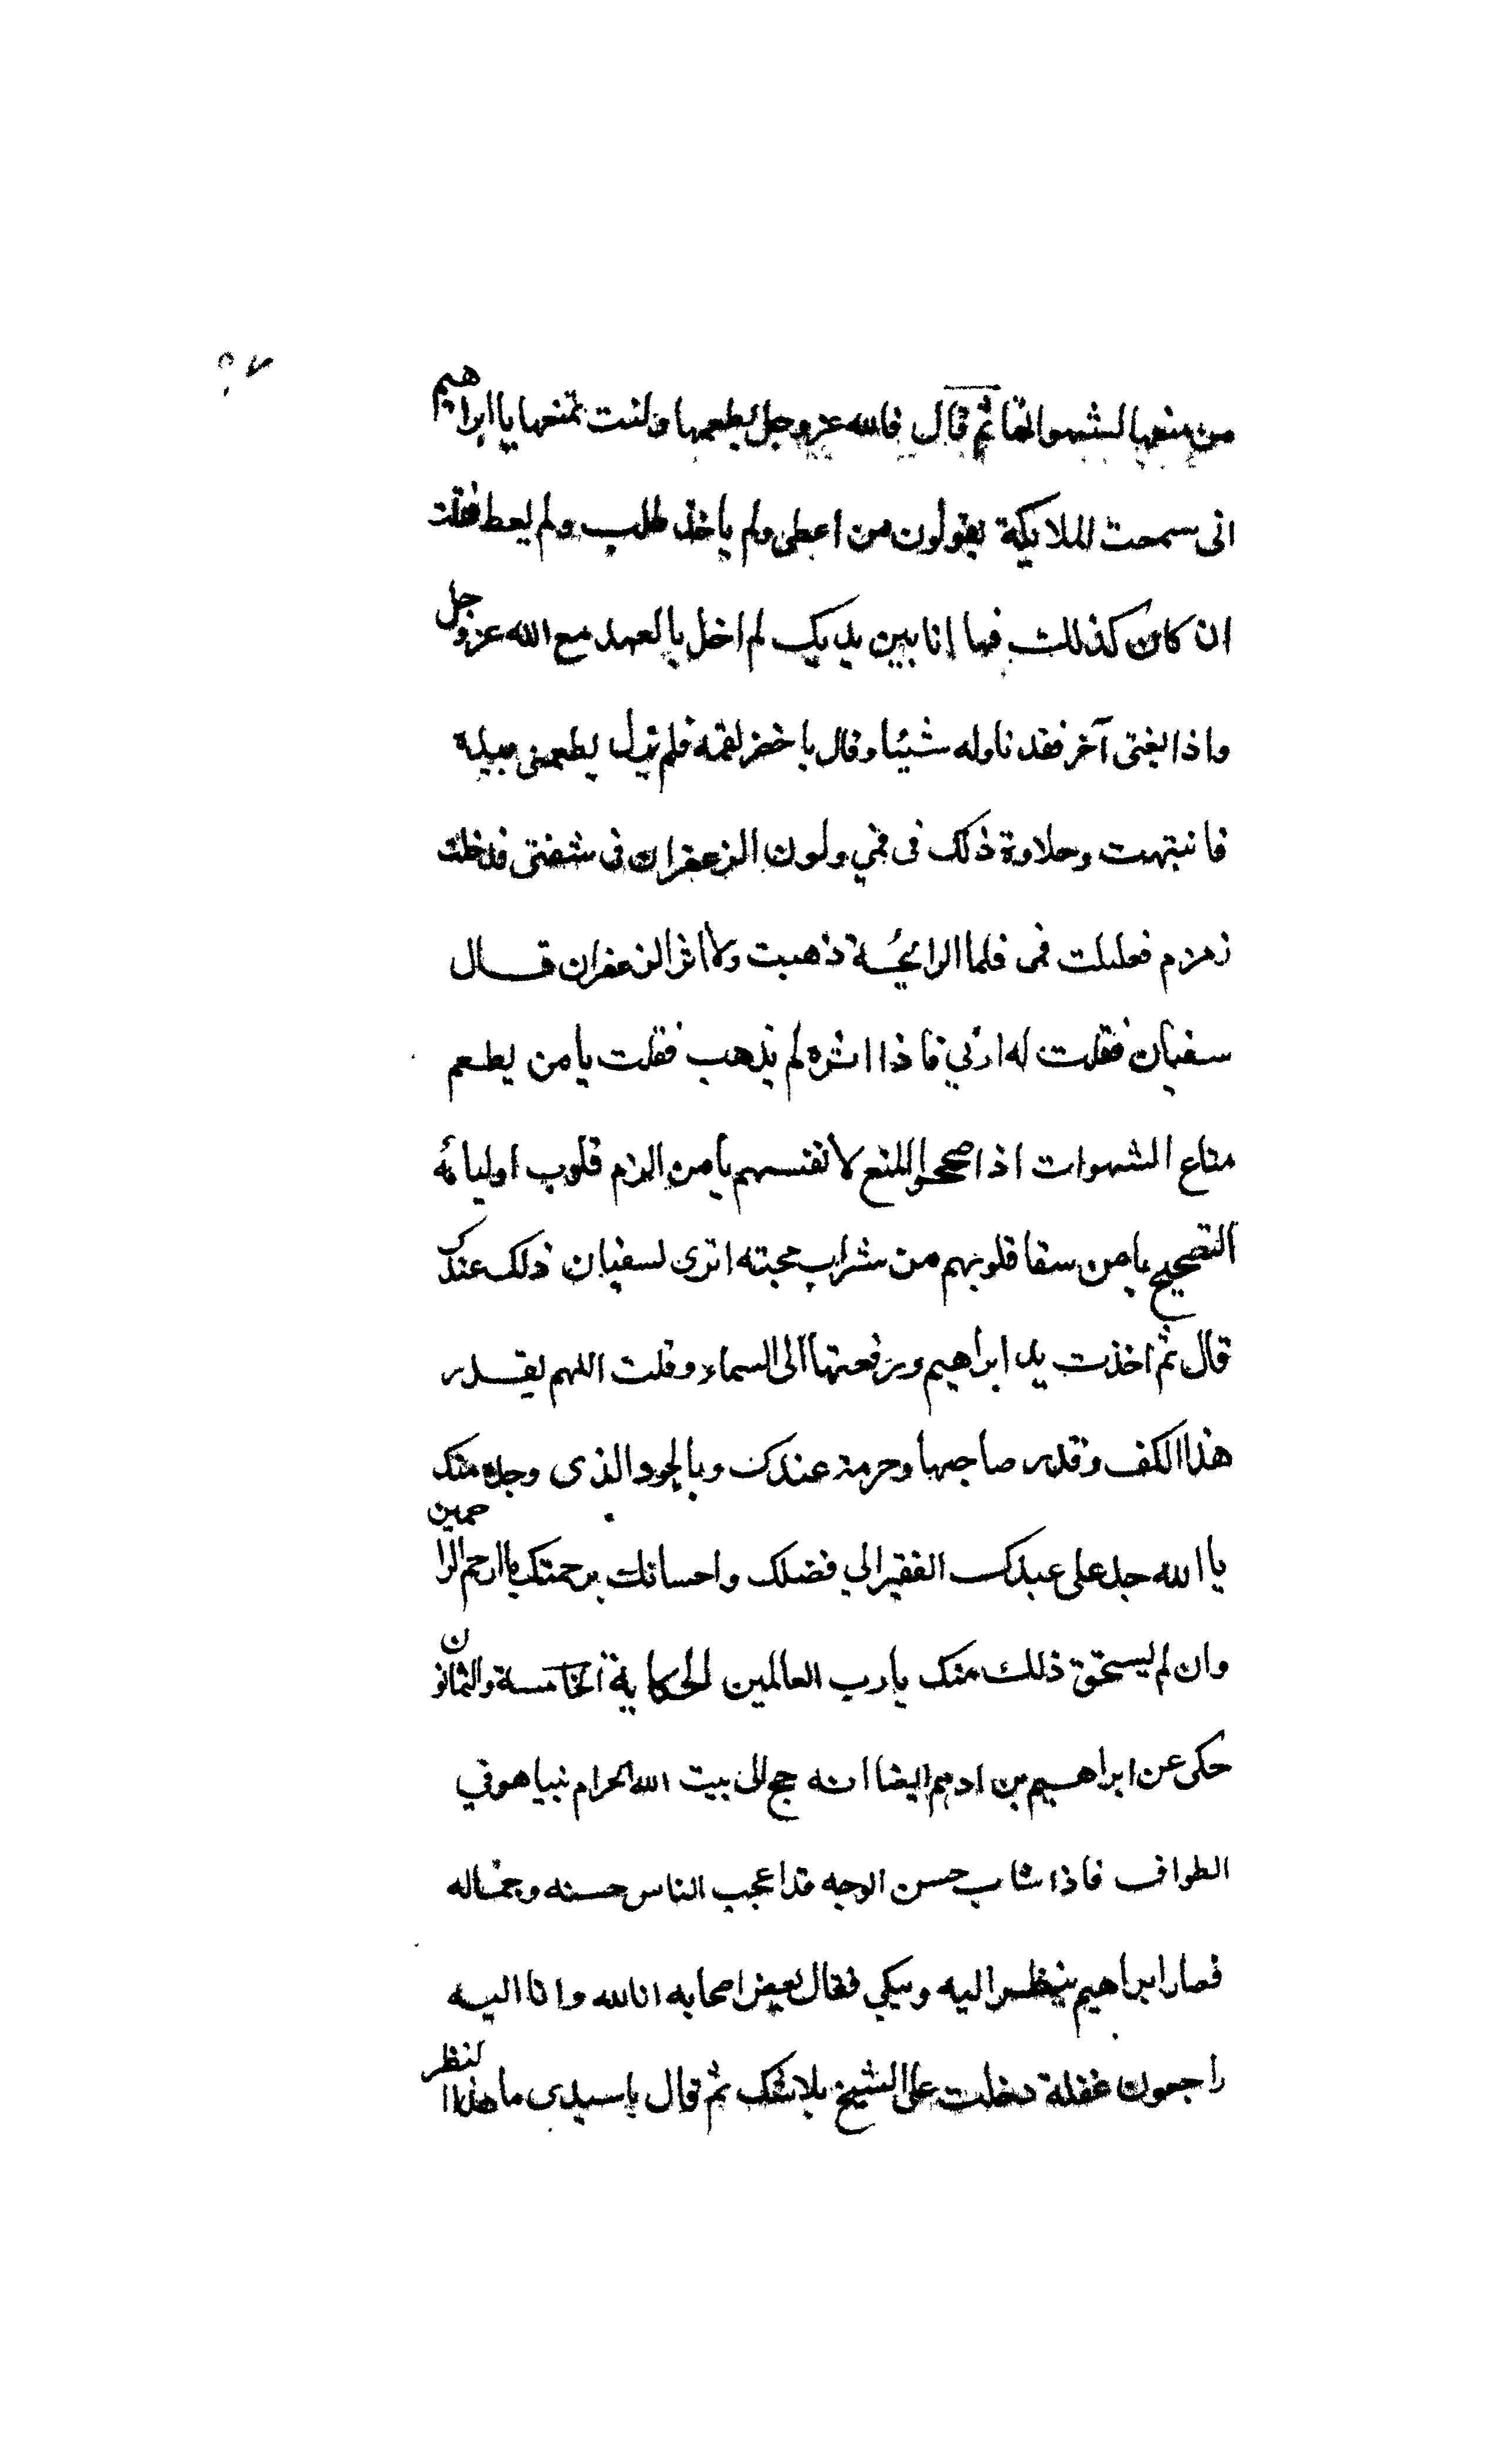 من منعها لشهواتها ثم قال فالله عز وجل يطعمها وانت تمنعها يا ابراهيم
انى سمعت الملايكة يقولون من اعطى ولم ياخذ طلب ولم يعط فقلت
ان كان كذلك فها انا بين يديك لم اخل بالعهد مع الله عز وجل
واذا بفتى آخر فقد ناوله شيئا وقال يا خضر لقمه فلم يزل يطعمنى بيده
فانتبهت وحلاوة ذلك فى فمي ولون الزعفران فى شفتى فدخلت
زمزم فغسلت فمى فلما الرايحة ذهبت ولا اثر الزعفران قال
سفيان فقلت له ارني فاذا اثره لم يذهب فقلت يا من يطعم
مناع الشهوات اذا صححوا المنع لانفسهم يا من الزم قلوب اوليائه
التصحيح يا من سقا قلوبهم من شراب محبته اترى لسفيان ذلك عندك
قال ثم اخذت يد ابراهيم ورفعتها الى السماء وقلت اللهم بقدر
هذا الكف وقدر صاحبها وحرمته عندك وبالجود الذى وجده منك
يا الله جد على عبدك الفقير الي فضلك واحسانك برحمتك يا ارحم الراحمين
وان لم يستحق ذلك منك يا رب العالمين الحكاية الخامسة والثمانون
حكى عن ابراهيم بن ادهم ايضا انه حج الى بيت الله الحرام فبينما هو في
الطواف فاذا شاب حسن الوجه قد اعجب الناس حسنه وجماله
فصار ابراهيم ينظر اليه ويبكي فقال بعض اصحابه انا لله وانا اليه
راجعون غفلة دخلت على الشيخ بلا شك ثم قال يا سيدى ما هذا النظر